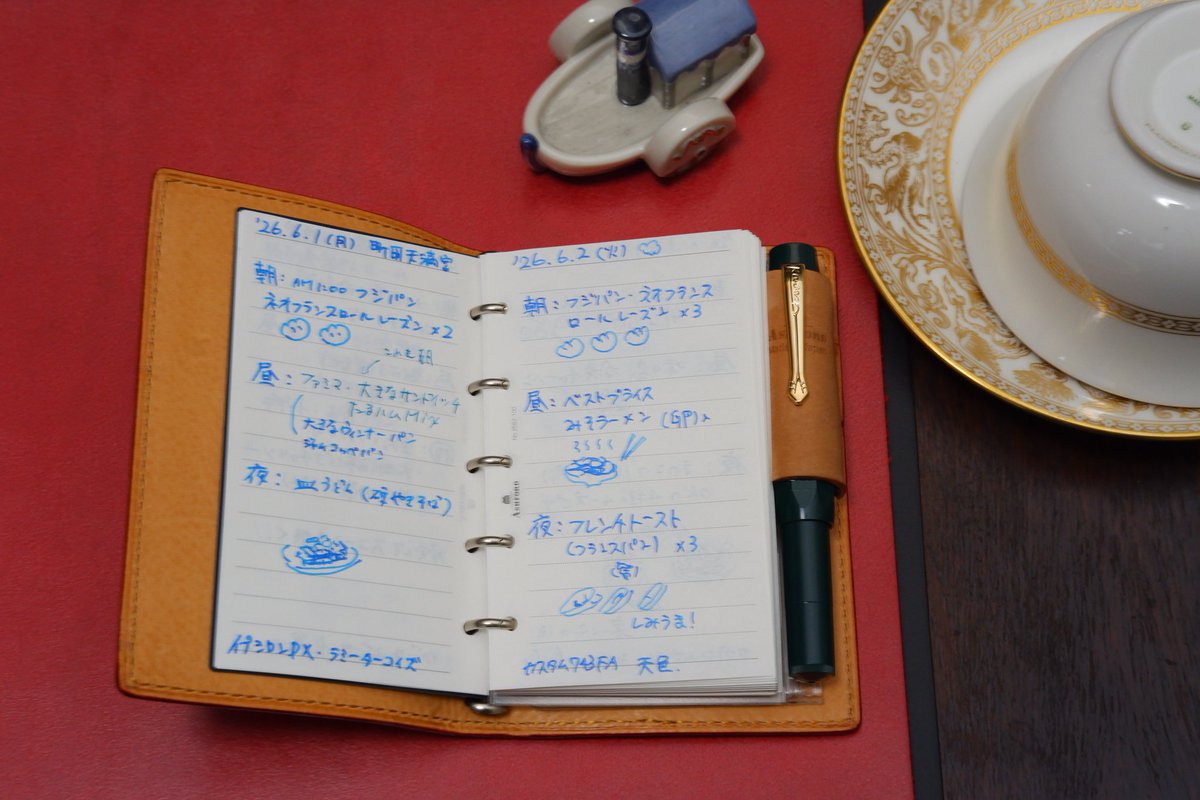 '26.6.1(月) 町田天満宮
朝: AM1:00 フジパン
ネオフランスロールレーズン ×2
これも朝
昼: ファミマ・大きなサンドイッチ
たまハムMix
大きなウィンナーパン
ジャムコッペパン
夜: 皿うどん(硬やきそば)
イプシロンDX・ラミーターコイズ
'26.6.2(火)
朝: フジパン・ネオフランス
ロールレーズン ×3
昼: ベストプライス
みそラーメン
夜: フレンチトースト
(フランスパン) ×3
しみうま!
カスタム743FA 天色.
Ashford